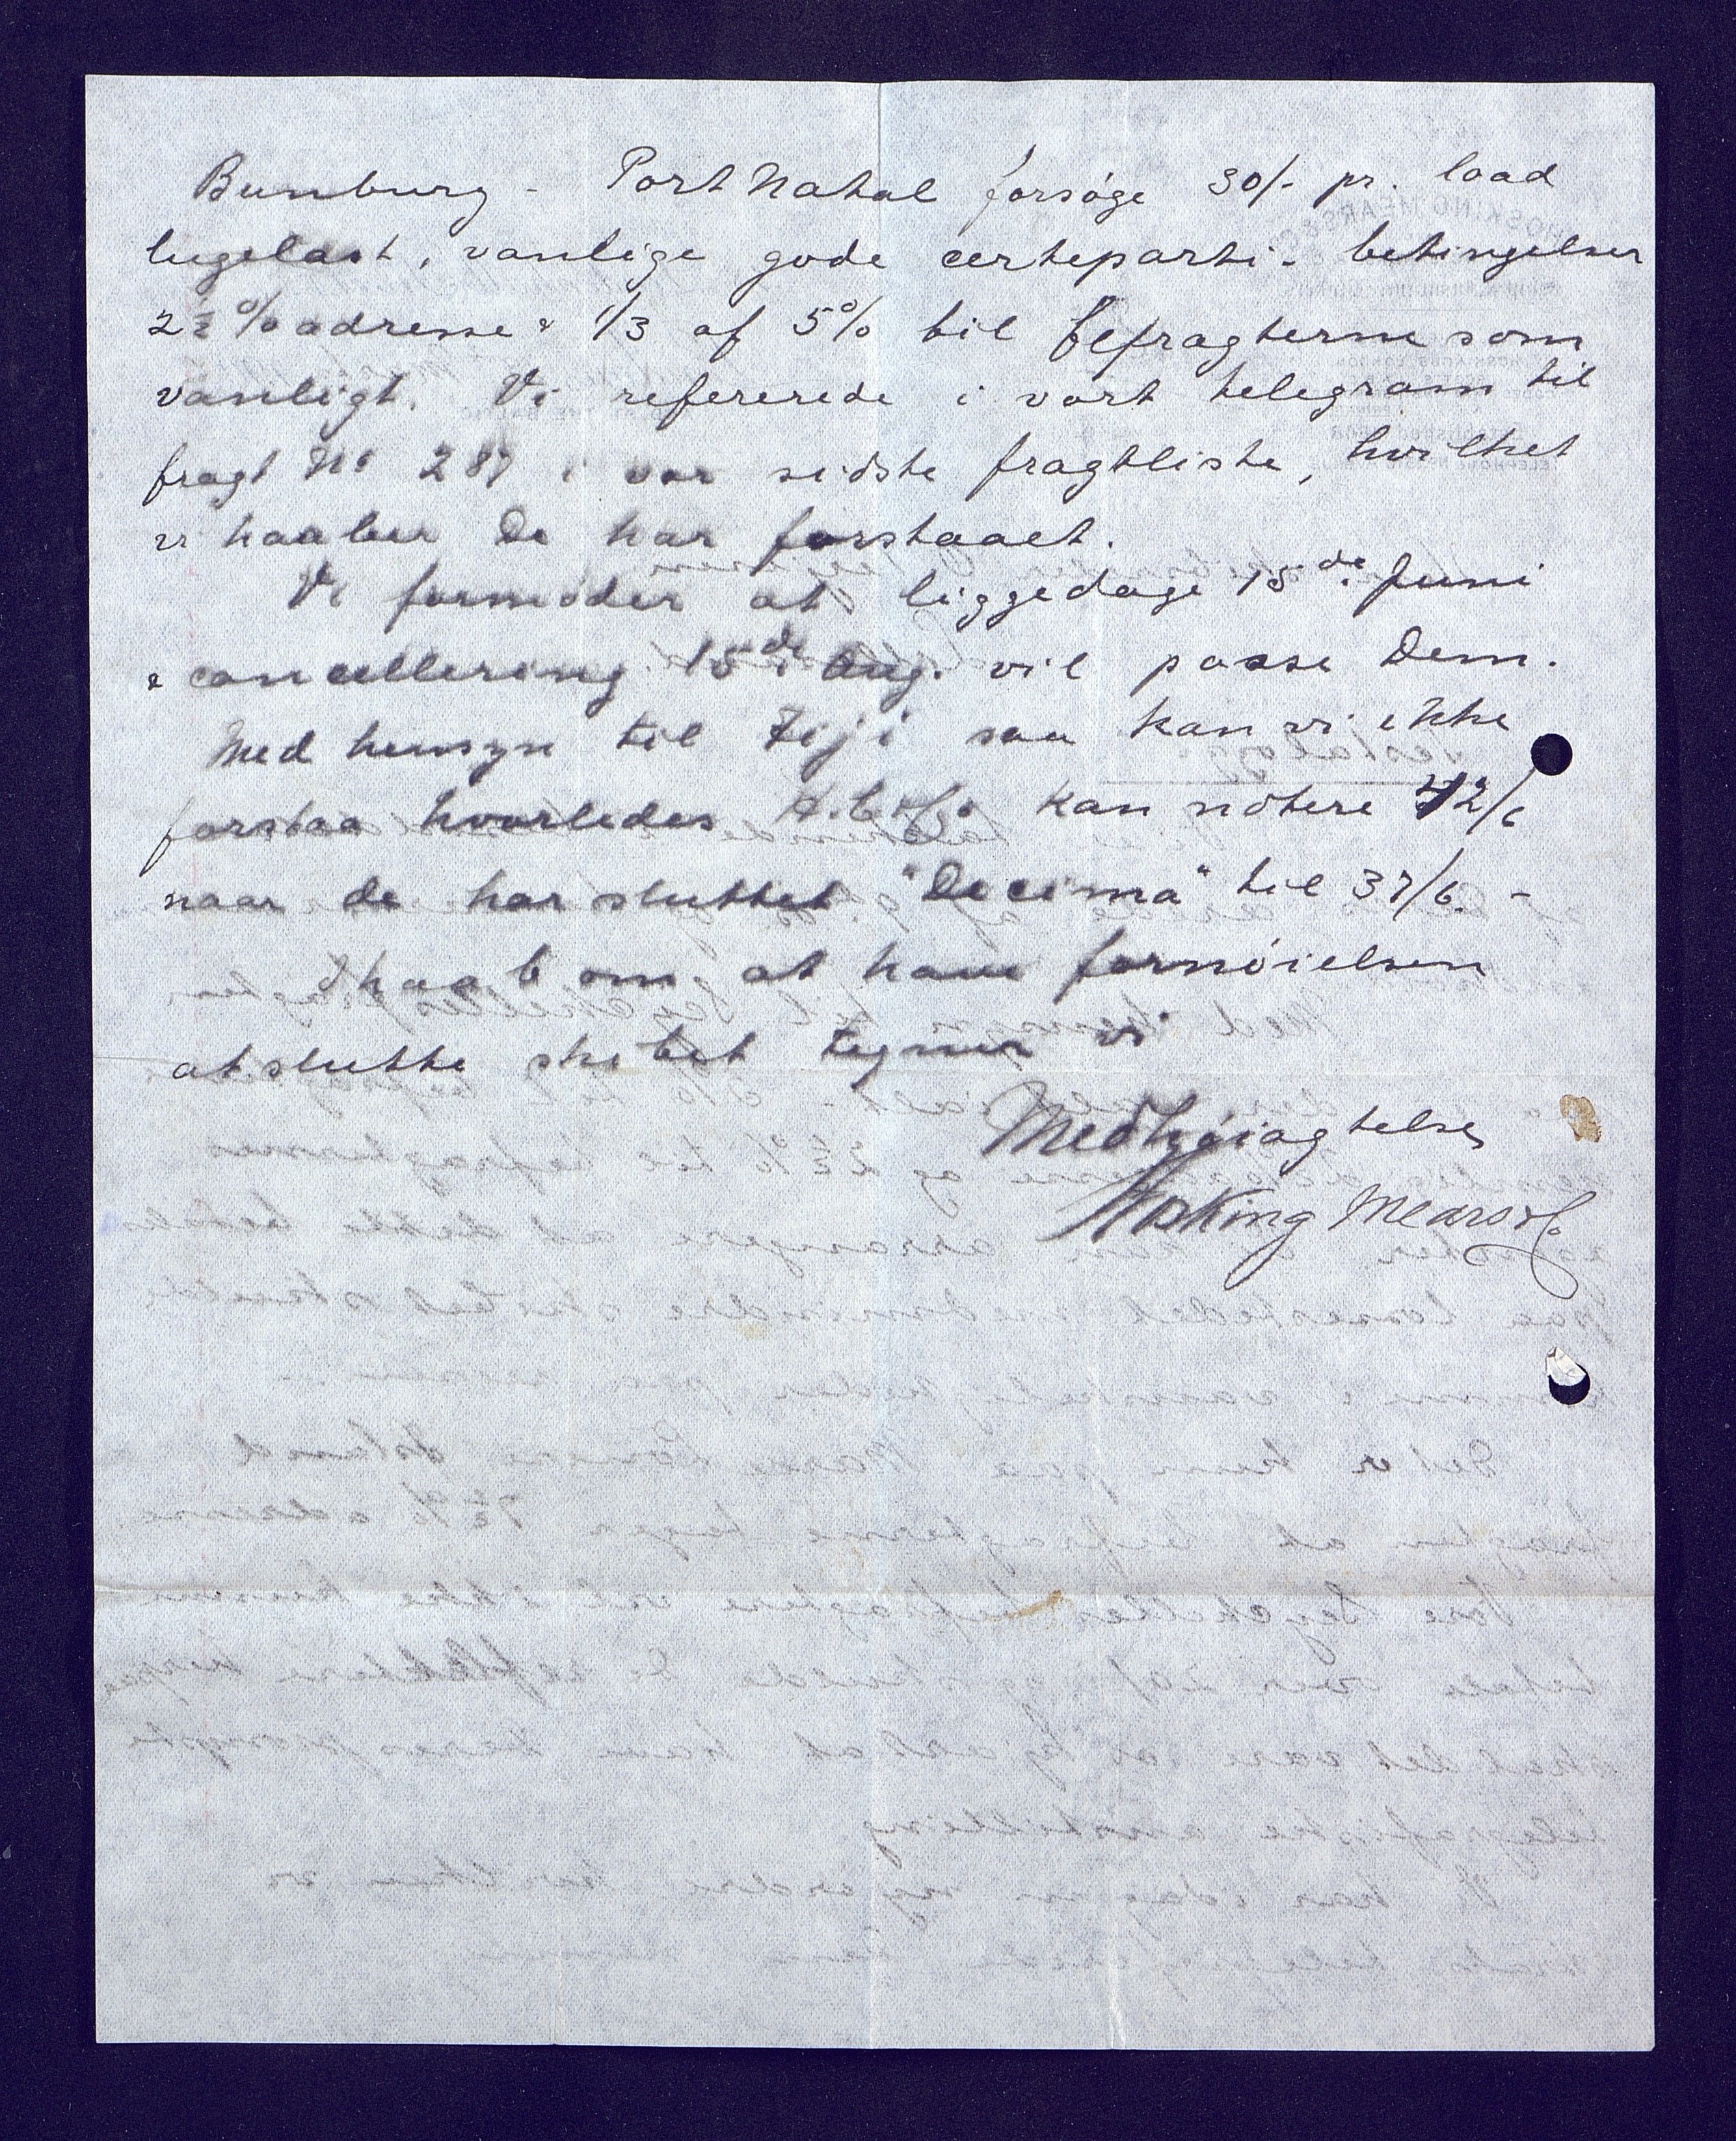 Bunbury - Port Natal forsøge 30/- pr. load
lugelast, vanlige gode certeparti- betingelser
2½ % adresse & 1/3 af 5% til befragterne som
vanligt. Vi refererede i vort telegram til
fragt No 287 i vor sidste fragtliste, hvilket
vi haaber De har forstaaet.
Vi formoder at liggedage 15de Juni
& cancellering 15de Aug. vil passe Dem.
Med hensyn til Fiji saa kan vi ikke
forstaa hvorledes kan notere 42/6
naar de har sluttet "Decima" til 37/6. -
I haab om at have fornøielsen
at slutte skibet tegner vi
Med høiagtelse
Hosking Mears & Co